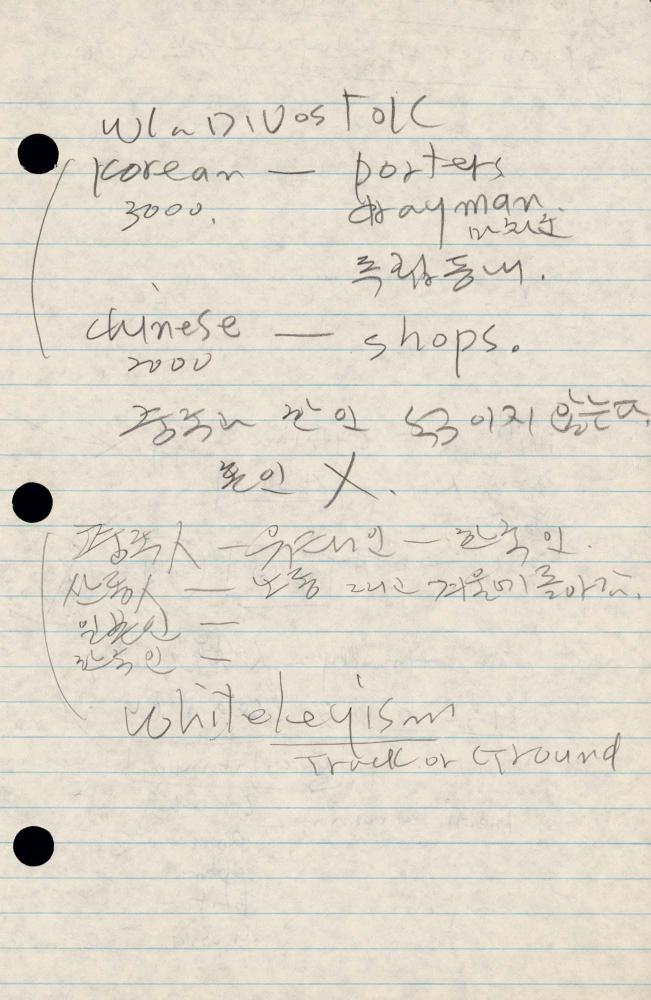 WlaDIVosTolC
Korean — porters
3000. drayman.
마차꾼
독립동네.
chinese — shops.
2000
중국과 한인 섞이지 않는다.
혼인 X.
중국人 — 유대인 — 한국인.
산동人 — 노동 그리고 겨울에 돌아감.
일본인 =
한국인 =
Track or Ground